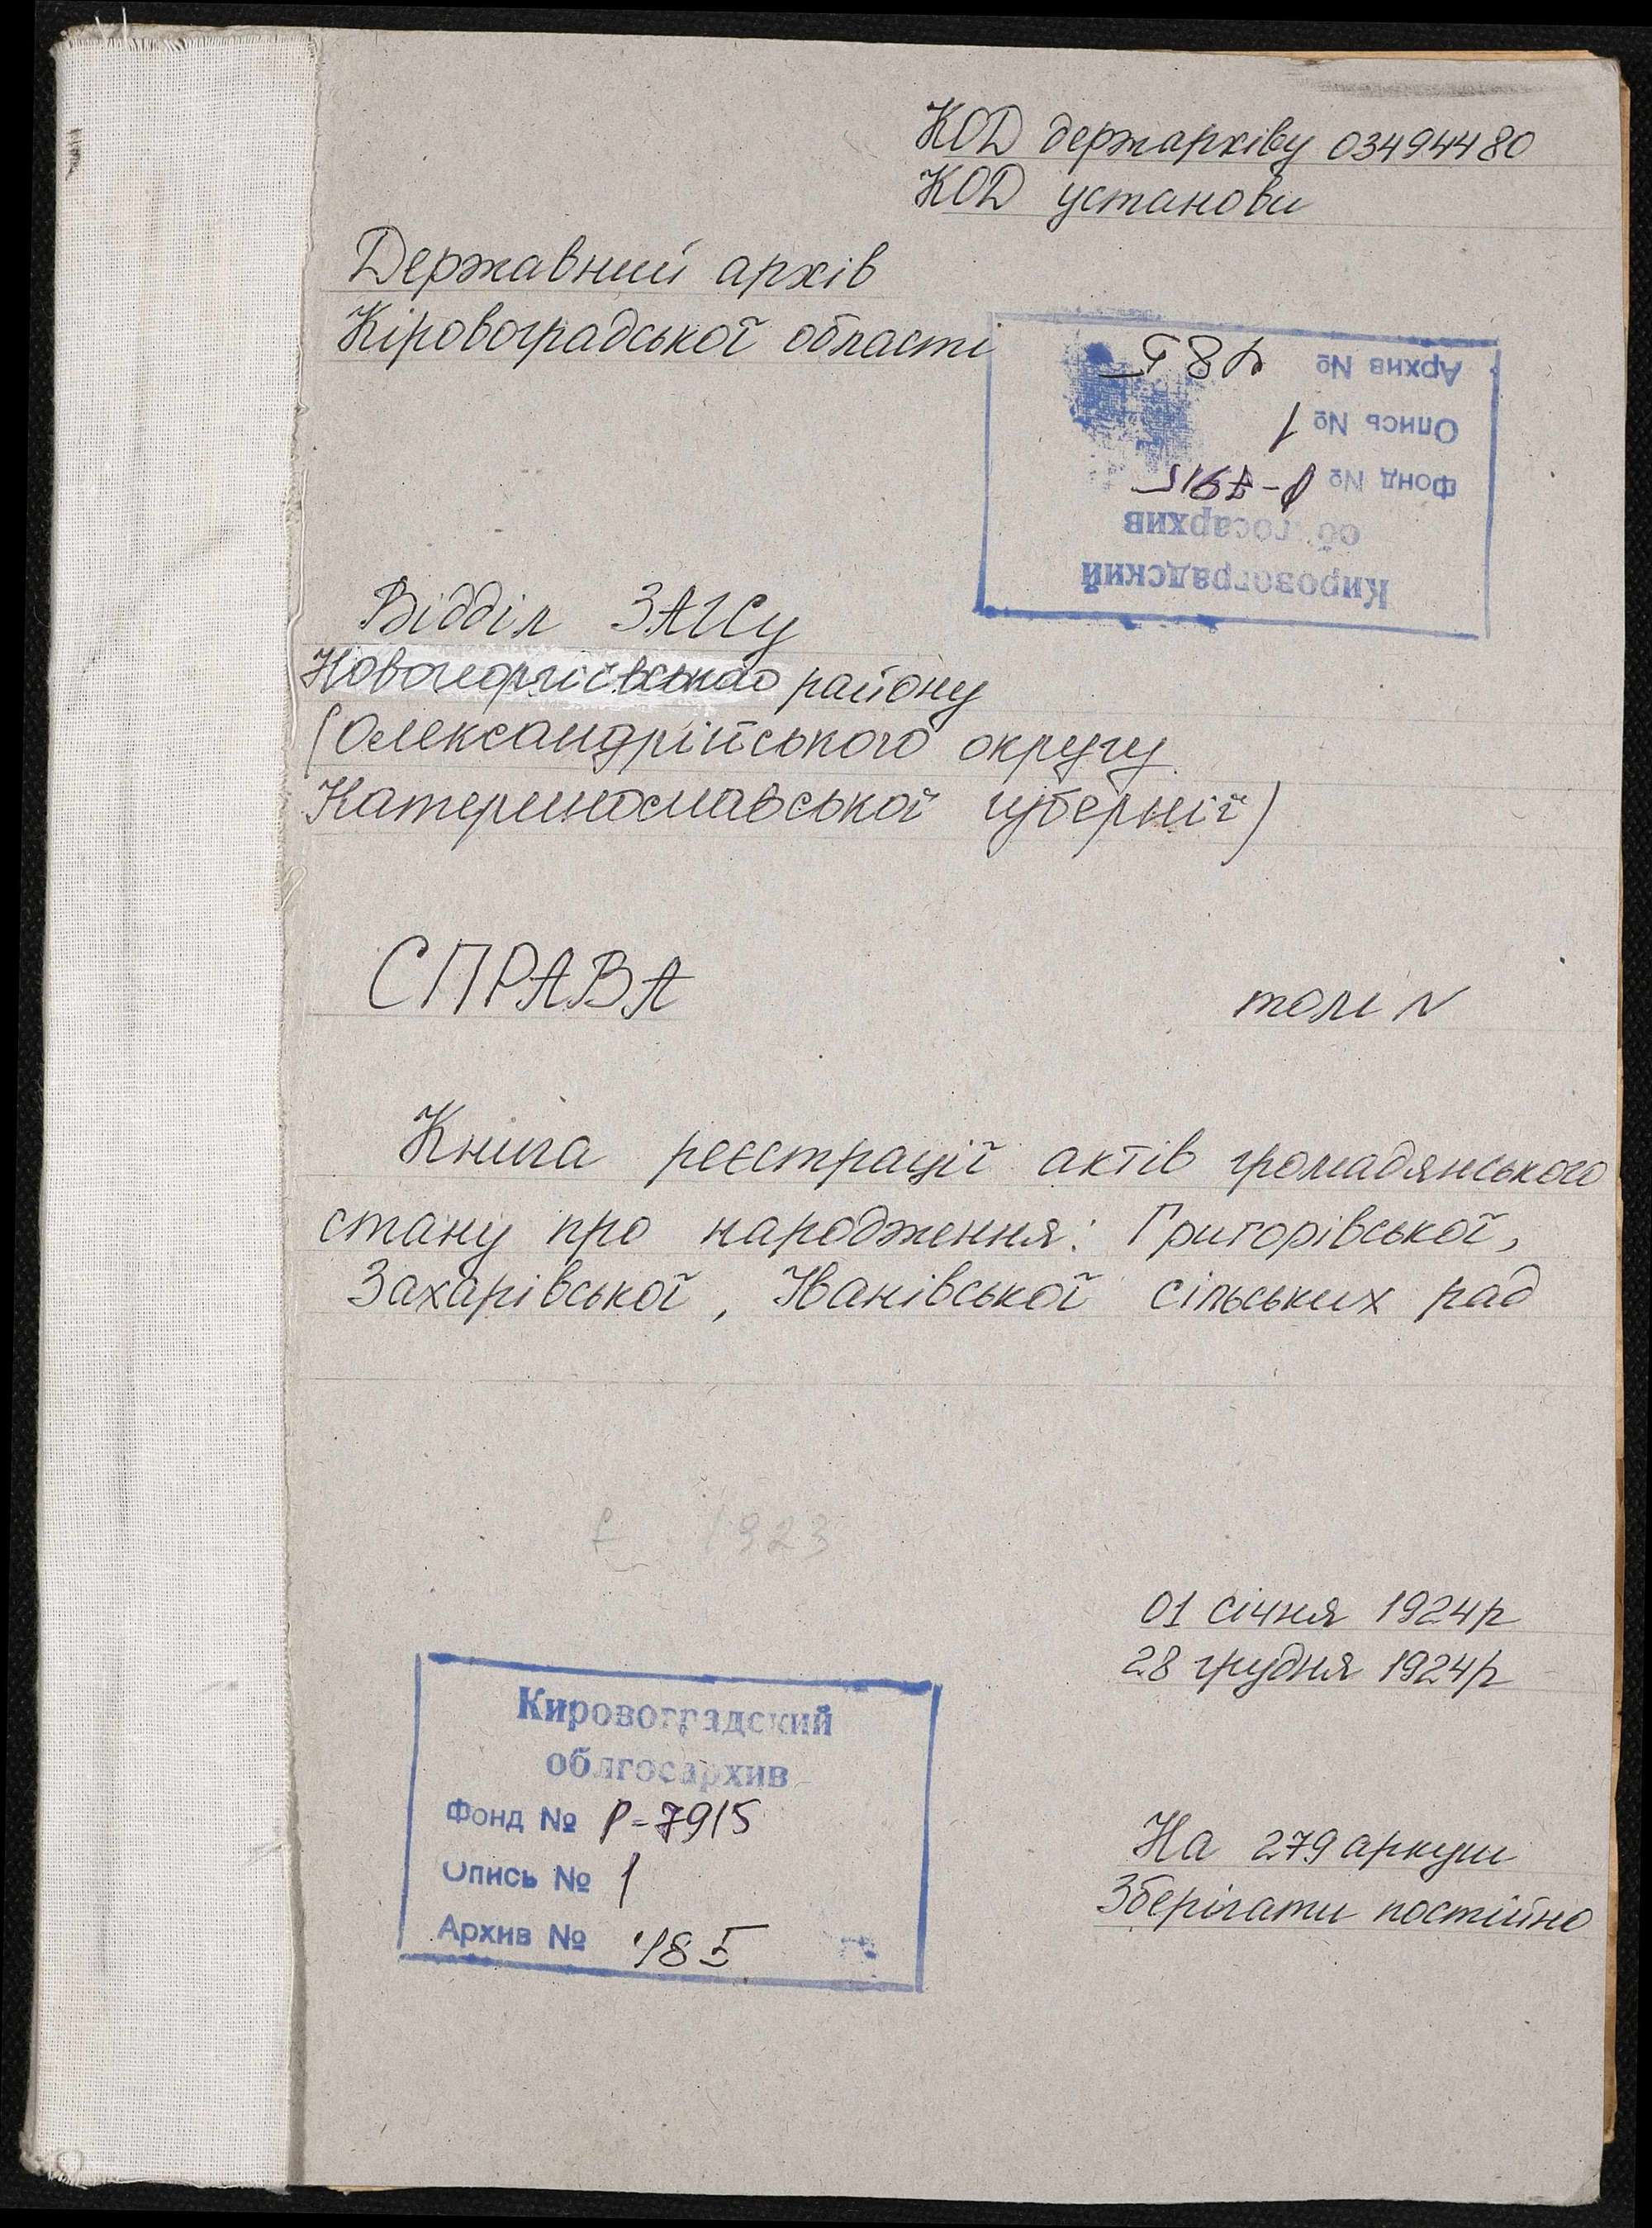 КОД держархіву 03494480
КОД установи
Державний архів
Кіровоградської області
Кировоградский
облгосархив
Фонд № Р-7915
Опись № 1
Архив № 485
Відділ ЗАГСу
Новогеоргіївського району
(Олександрійського округу
Катеринославської губернії)
СПРАВА том N
Книга реєстрації актів громадянського
стану про народження: Григорівської,
Захарівської, Іванівської сільських рад
1923
01 січня 1924р
28 грудня 1924р
Кировоградский
облгосархив
Фонд № Р-7915
Опись № 1
Архив № 485
На 279 аркуш
Зберігати постійно